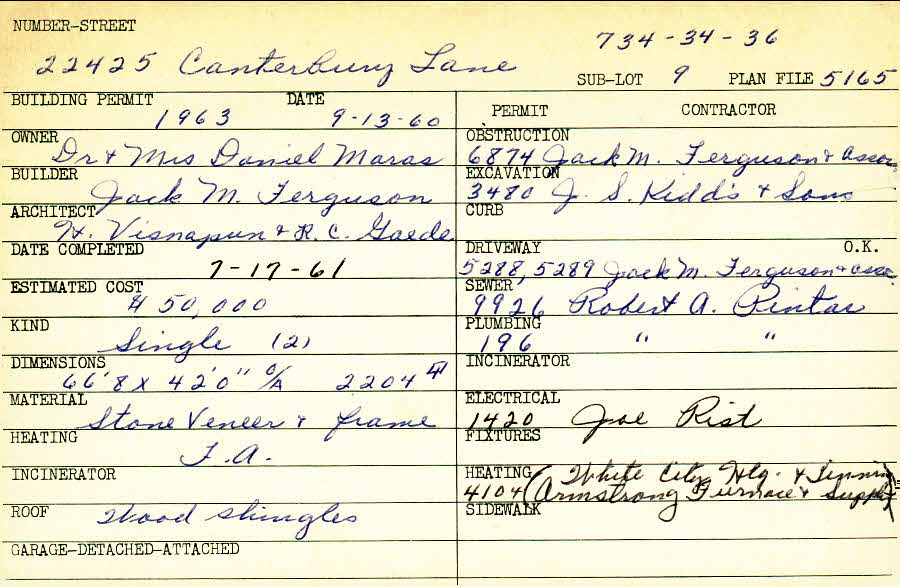 NUMBER-STREET
734-34-36
22425 Canterbury Lane
SUB-LOT 9 PLAN FILE 5165
BUILDING PERMIT DATE
1963 9-13-60
OWNER
Dr & Mrs Daniel Maras
BUILDER
Jack M. Ferguson
ARCHITECT
H. Visnapuu & R. C. Gaede
DATE COMPLETED
7-17-61
ESTIMATED COST
$ 50,000
KIND
Single (2)
DIMENSIONS
66'8 X 42'0" O/A 2204
MATERIAL
Stone Veneer & frame
HEATING
F.A.
INCINERATOR
ROOF Wood shingles
GARAGE-DETACHED-ATTACHED
PERMIT CONTRACTOR
OBSTRUCTION
6874 Jack M. Ferguson & Assoc
EXCAVATION
3480 J. S. Kidd's & Sons
CURB
DRIVEWAY O.K.
5288, 5289 Jack M. Ferguson & Assoc.
SEWER
9926 Robert A. Pintar
PLUMBING
196 " "
INCINERATOR
ELECTRICAL
1420 Joe Rist
FIXTURES
HEATING White City Htg. & Tinning
4104 (Armstrong Furnace & Supply)
SIDEWALK